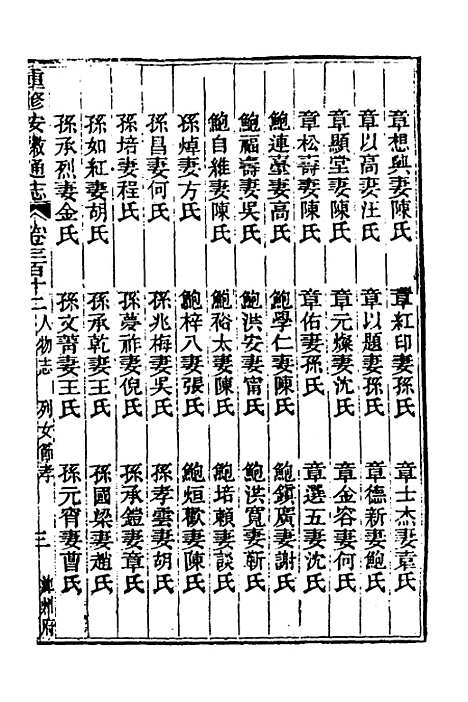 章想興妻陳氏　章紅印妻孫氏　章士杰妻袁氏
章以高妻汪氏　章以題妻孫氏　章德新妻鮑氏
章顯堂妻陳氏　章元燦妻沈氏　章金容妻何氏
章松壽妻陳氏　章佑妻孫氏　章選五妻沈氏
鮑連臺妻高氏　鮑學仁妻陳氏　鮑鎮廣妻謝氏
鮑福壽妻吳氏　鮑洪安妻甯氏　鮑洪寬妻靳氏
鮑自維妻陳氏　鮑裕太妻陳氏　鮑培賴妻談氏
孫焯妻方氏　鮑梓八妻張氏　鮑烜歡妻陳氏
孫昌妻何氏　孫兆梅妻吳氏　孫孝雲妻胡氏
孫培妻程氏　孫蔓祚妻倪氏　孫承鎧妻章氏
孫如紅妻胡氏　孫承乾妻王氏　孫國梁妻趙氏
孫承烈妻金氏　孫文菁妻王氏　孫元宵妻曹氏
重修安徽通志　卷三百十二　人物志　列女節孝　三　州府